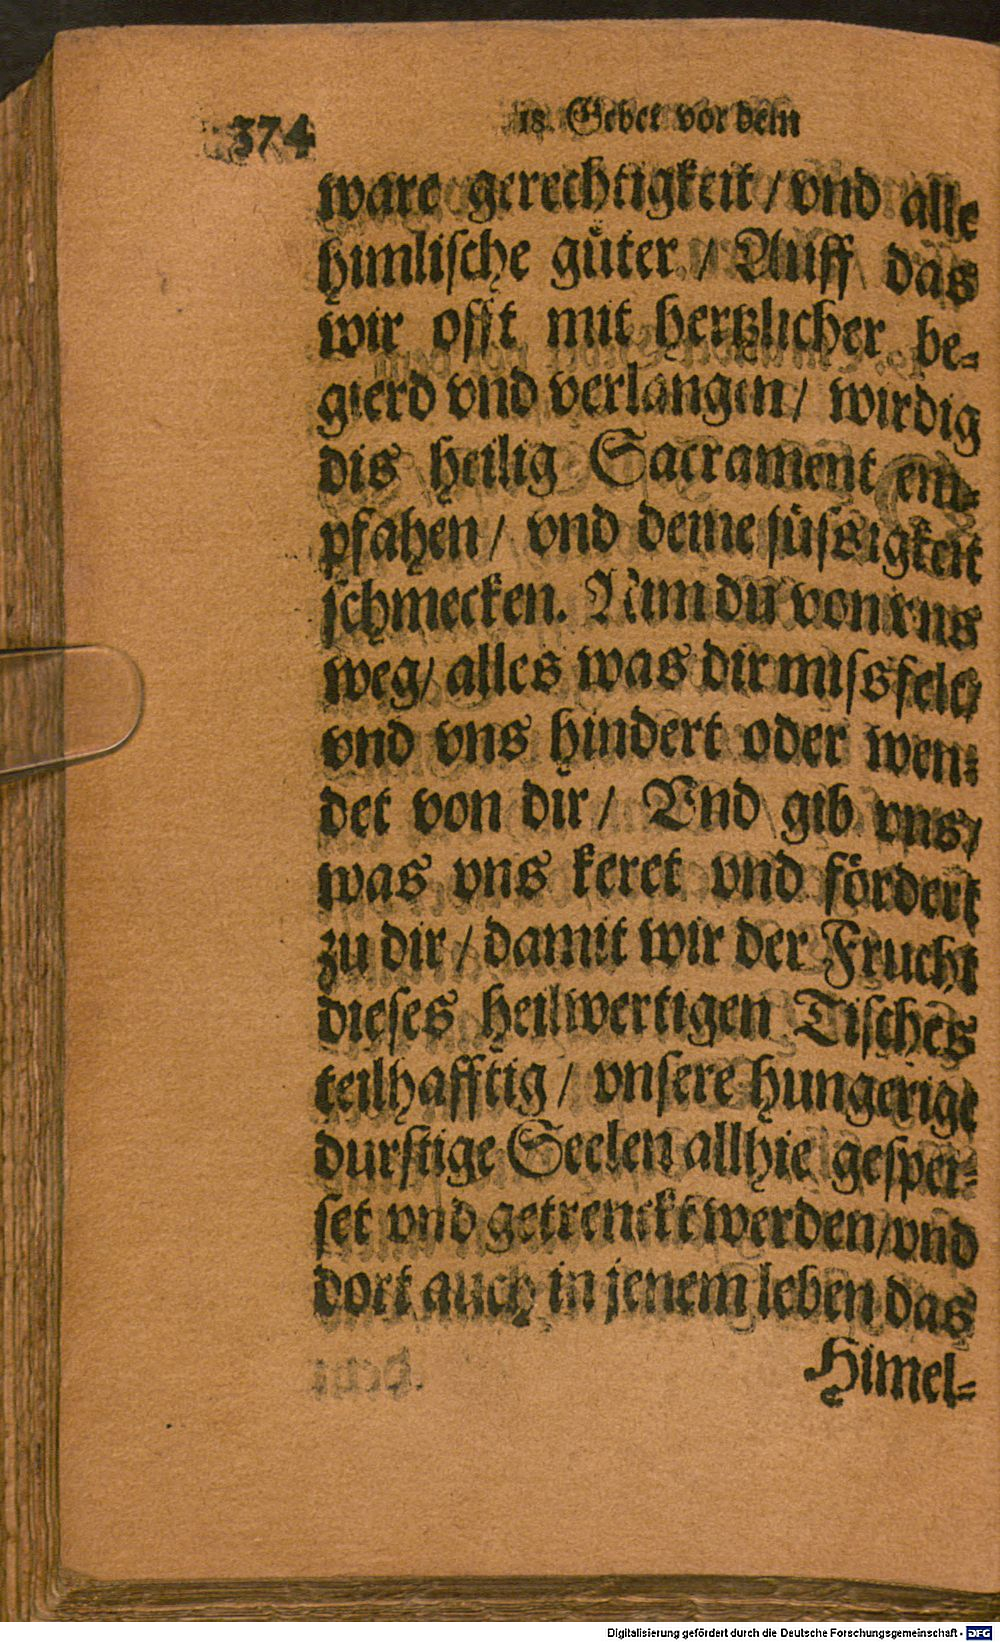 374
18. Gebet vor dem
ware gerechtigkeit / vnd alle
himlische guͤter / Auff das
wir offt mit hertzlicher be-
gierd vnd verlangen / wirdig
dis heilig Sacrament em-
pfahen / vnd deine süssigkeit
schmecken. Nim du von vns
weg / alles was dir missfelt /
vnd vns hindert oder wen-
det von dir / Vnd gib vns /
was vns keret vnd fördert
zu dir / damit wir der Frucht
dieses heilwertigen Tisches
teilhafftig / vnsere hungerige
durstige Seelen allhie gespei-
set vnd getrenckt werden / vnd
dort auch in jenem leben das
Himel-
Digitalisierung gefördert durch die Deutsche Forschungsgemeinschaft - DFG